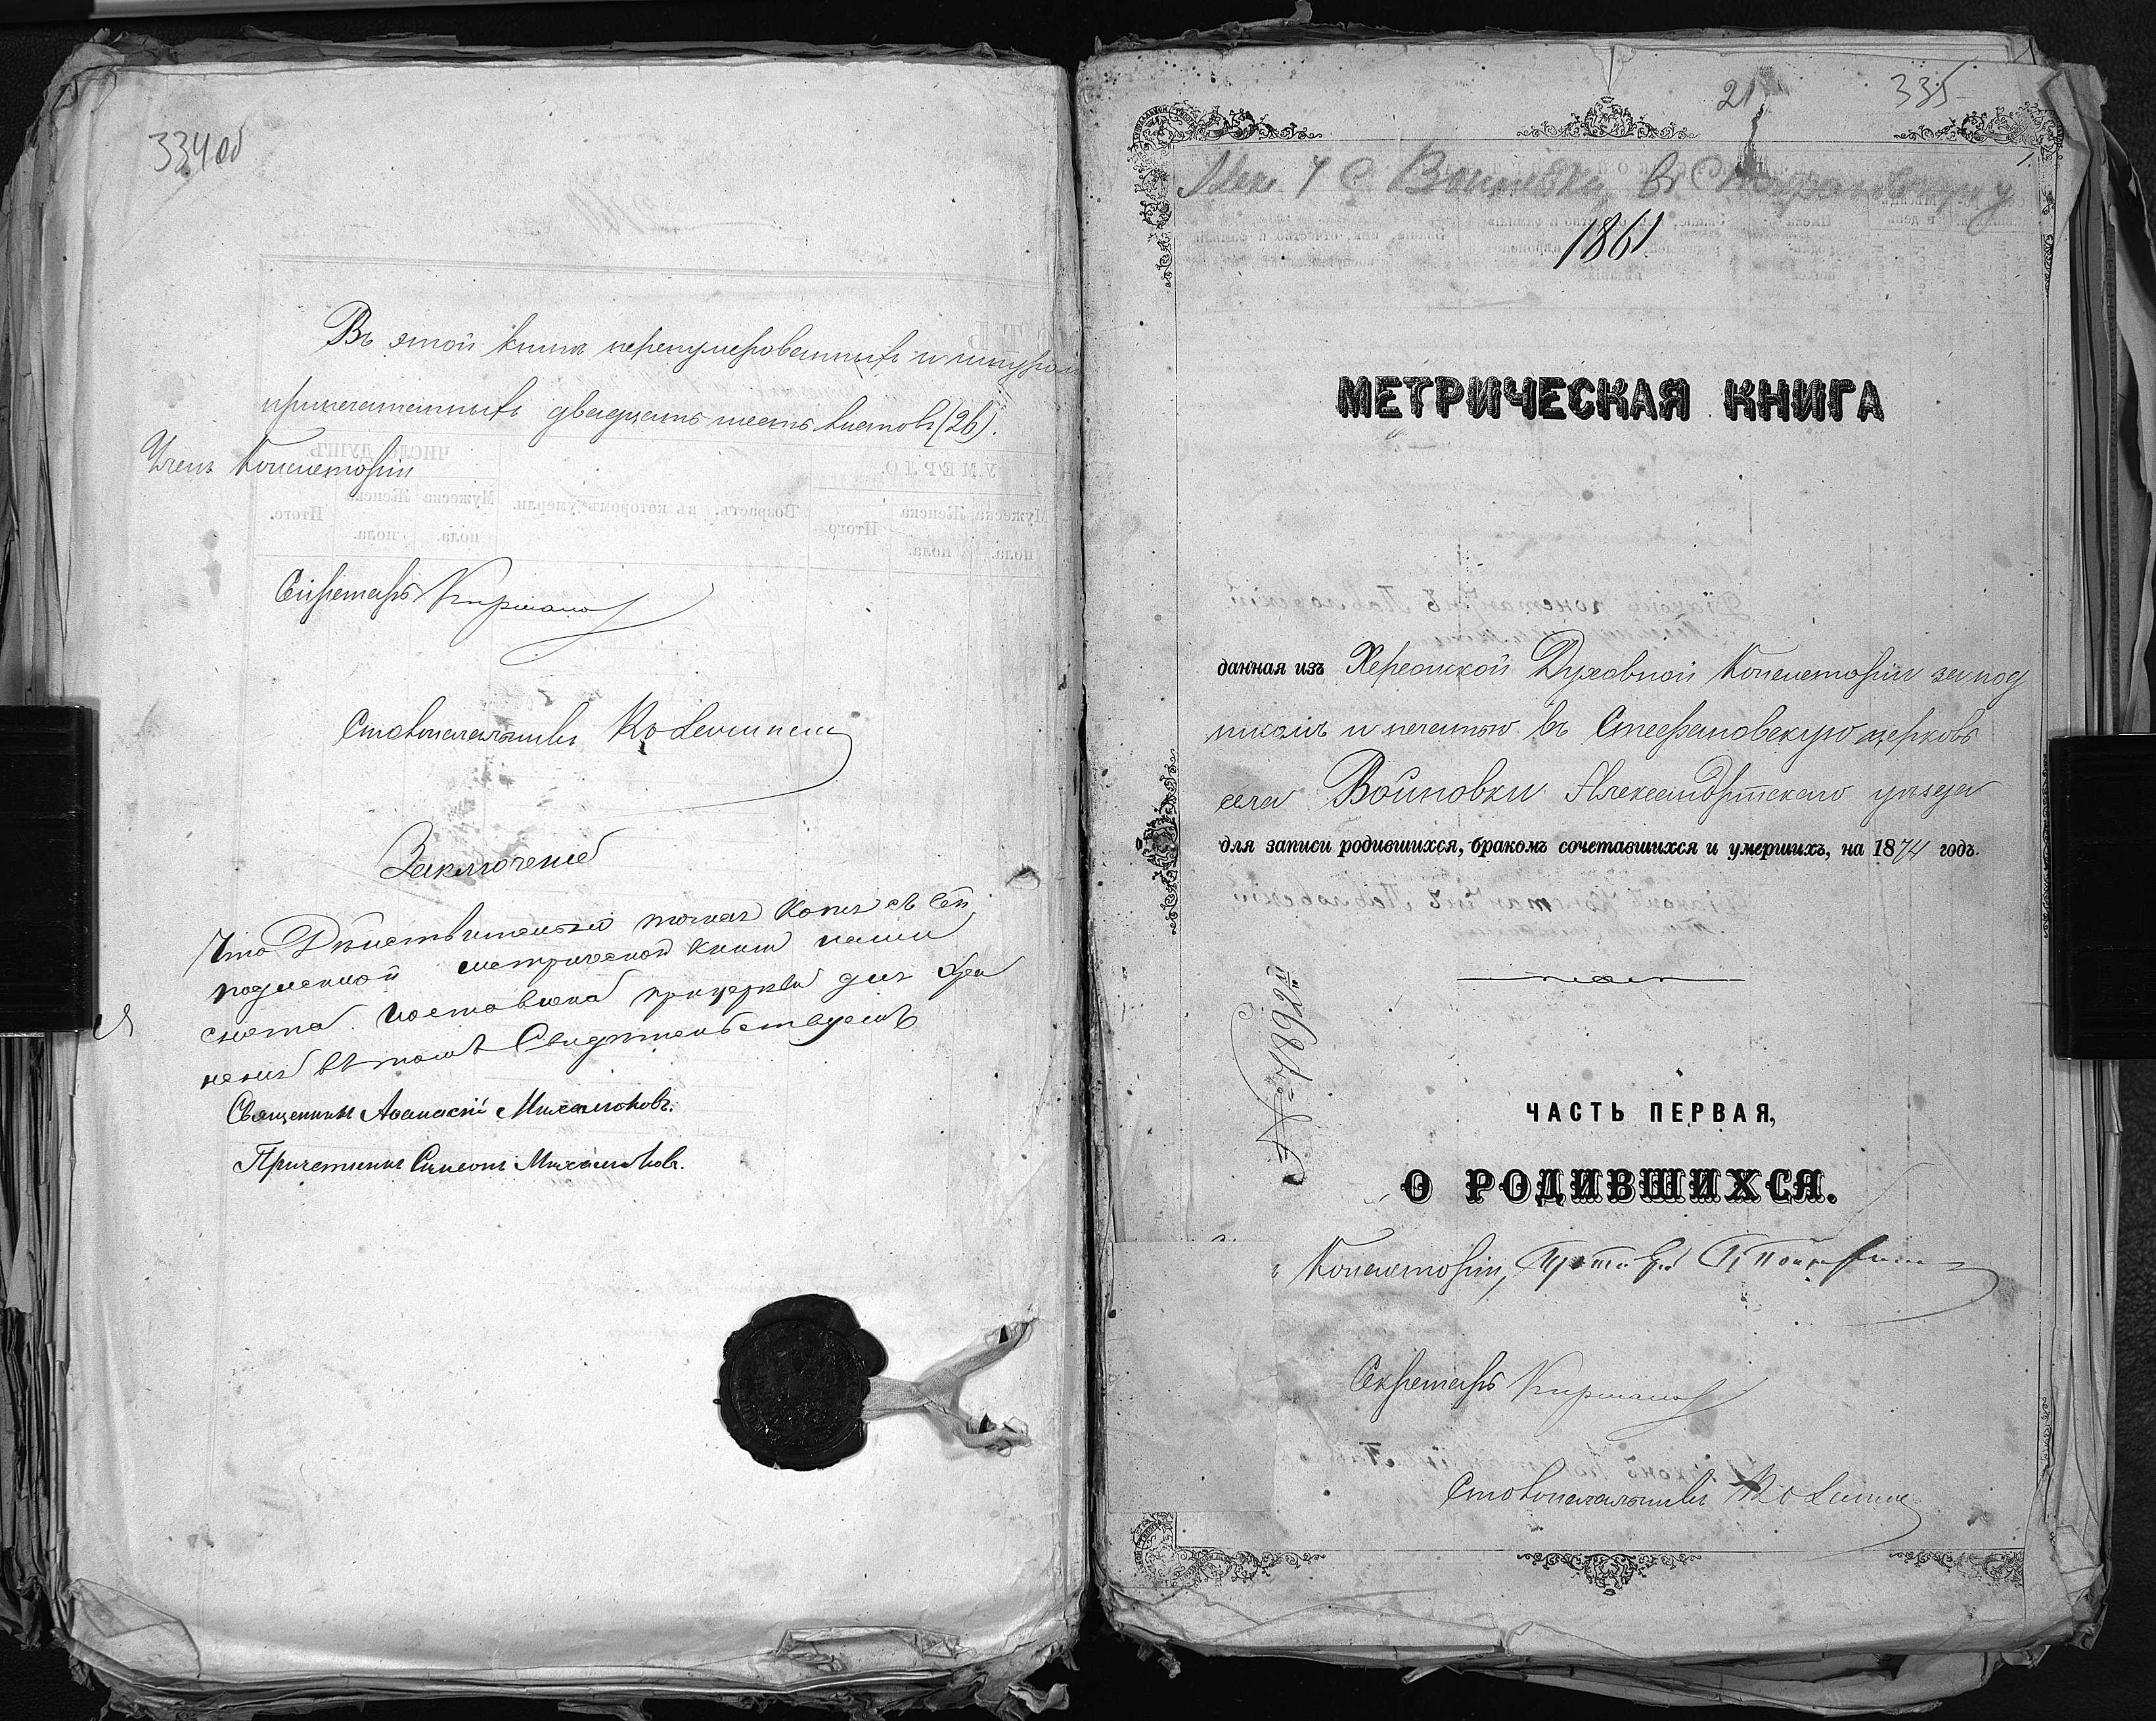 334 об
Въ этой книге перенумерованныхъ и шнуром
припечатанныхъ двадцать шесть листовъ (26).
Членъ Консисторіи
Секретарь
Столоначальникъ
Заключеніе
Что Действительно точная копія съ
метрической книги нашей
составлена при церкви для хра
ненія въ томъ Свидетельствуемъ
Священникъ Аѳанасій Михалюковъ.
Причетникъ Симеонъ Михалюковъ.
21 335
Алек У С Войновка, в Стефановскую ц
1861
МЕТРИЧЕСКАЯ КНИГА
данная изъ Херсонской Духовной Консисторіи за под
писомъ и печатью въ Стефановскую церковь
села Войновки Александрійскаго уѣзда
для записи родившихся, бракомъ сочетавшихся и умершихъ, на 1874 годъ.
№ 7892
ЧАСТЬ ПЕРВАЯ,
О РОДИВШИХСЯ.
Консисторіи,
Секретарь
Столоначальникъ